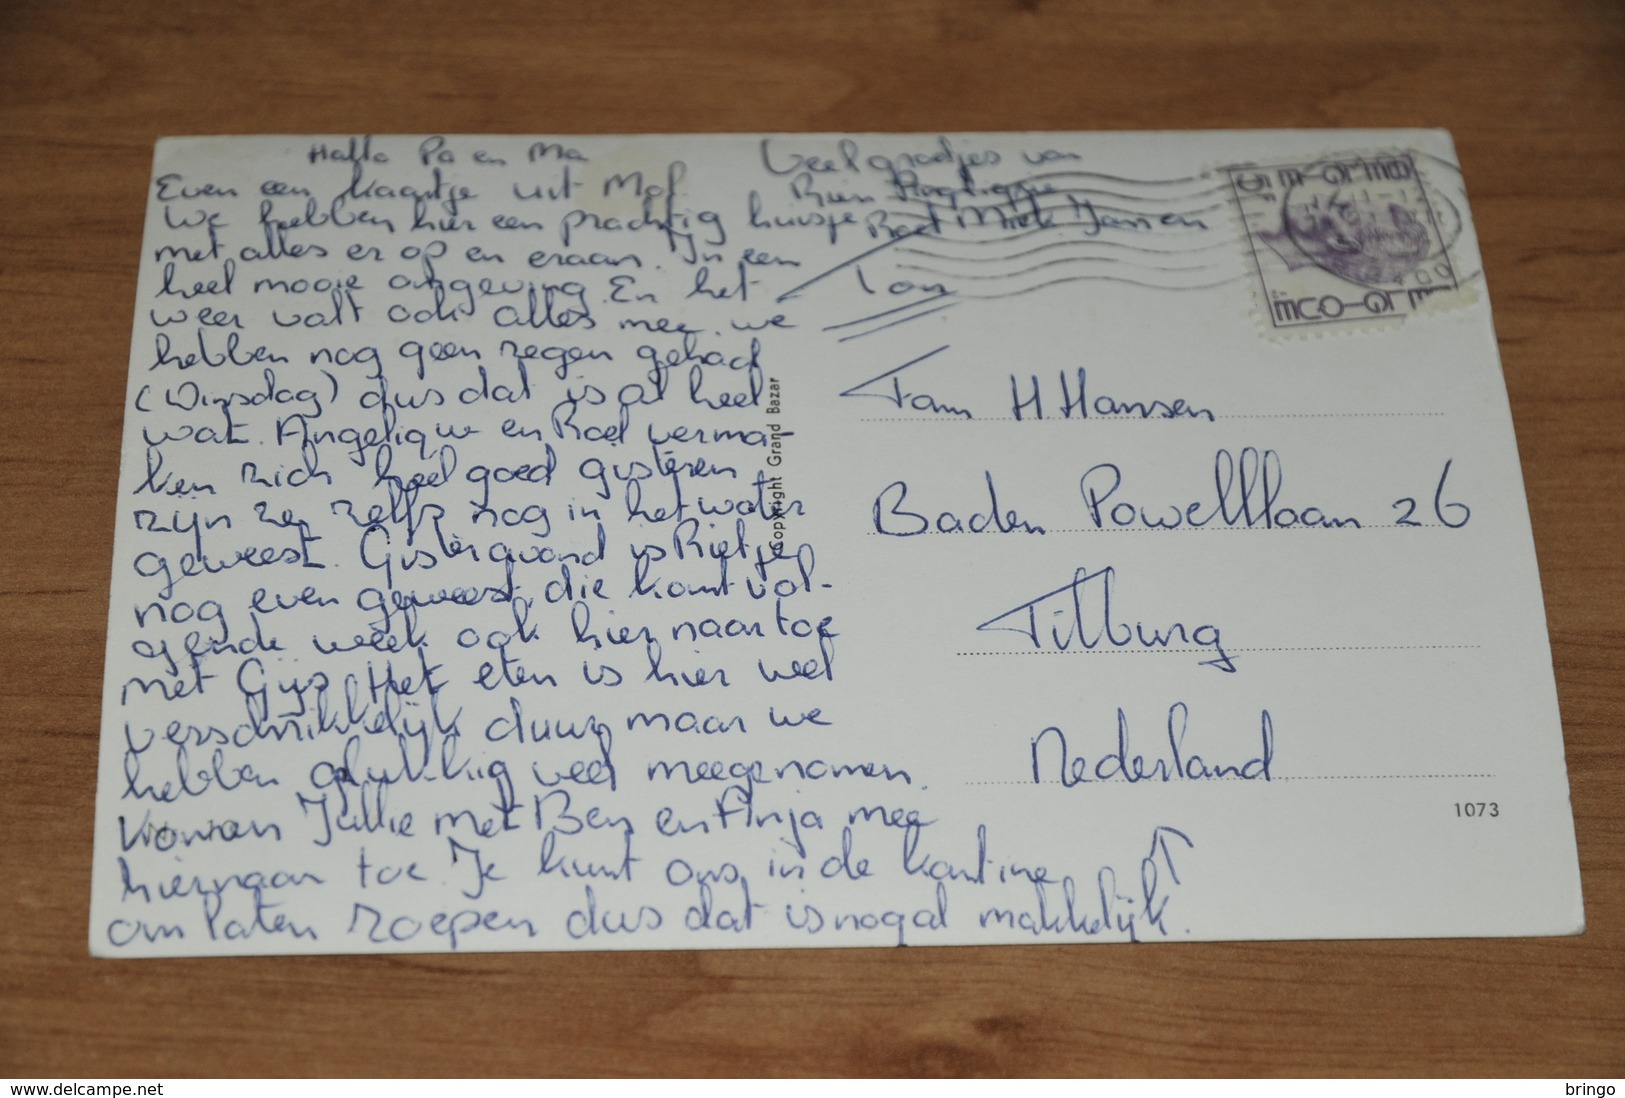 Hallo Pa en Ma
Even een kaartje uit Mol.
We hebben hier een prachtig huisje
met alles er op en eraan. In een
heel mooie omgeving. En het
weer valt ook alles mee. we
hebben nog geen regen gehad
(Dinsdag) dus dat is al heel
wat. Angelique en Roel verma-
ken zich heel goed gisteren
zijn ze zelfs nog in het water
geweest. Gisteravond is Rietje
nog even geweest, die komt vol-
gende week ook hier naar toe
met Gijs. Het eten is hier wel
verschrikkelijk duur maar we
hebben gelukkig veel meegenomen.
Komen Jullie met Ben en Anja mee
hiernaar toe. Je kunt ons in de kantine
om laten roepen dus dat is nogal makkelijk.
Veel groetjes van
Rien Angelique
Roel Miek Jansen
Ton
Fam H Hansen
Baden Powelllaan 26
Tilburg
Nederland
Copyright Grand Bazar
1073
www.delcampe.net
bringo